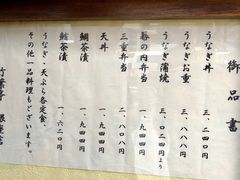 御品書
うなぎ丼 二、三一〇円
うなぎお重 三、一五〇円
うなぎ蒲焼 三、〇二四円より
昼の内弁当 一、九四四円
三重弁当 二、八〇八円
天丼 一、九四四円
鯛茶漬 一、九四四円
鮭茶漬 一、六二〇円
うなぎ、天ぷら各定食、
その他一品料理もございます。
竹葉亭 銀座店